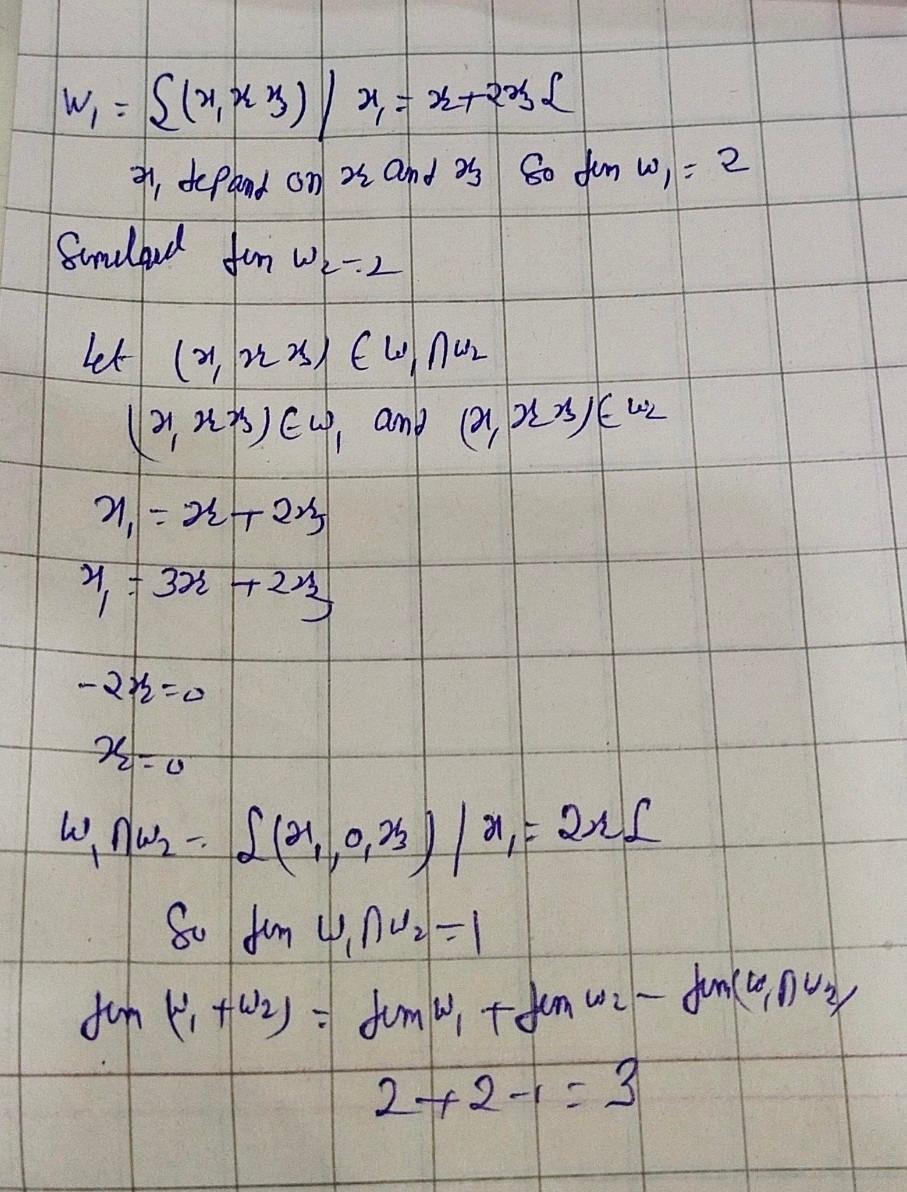 W₁ = {(x₁, x₂ x₃) / x₁ = x₂+2x₃}
x₁ depand on x₂ and x₃ So dim W₁ = 2
dim W₂ = 2
Let (x₁, x₂ x₃) ∈ W₁∩W₂
(x₁, x₂ x₃) ∈ W₁ and (x₁, x₂ x₃) ∈ W₂
x₁ = x₂ + 2x₃
x₁ = 3x₂ + 2x₃
-2x₂=0
x₂=0
W₁∩W₂ = {(x₁, 0, x₃) / x₁ = 2x}
So dim W₁∩W₂ = 1
dim (W₁+W₂) = dim W₁ + dim W₂ - dim(W₁∩W₂)
2+2-1 = 3